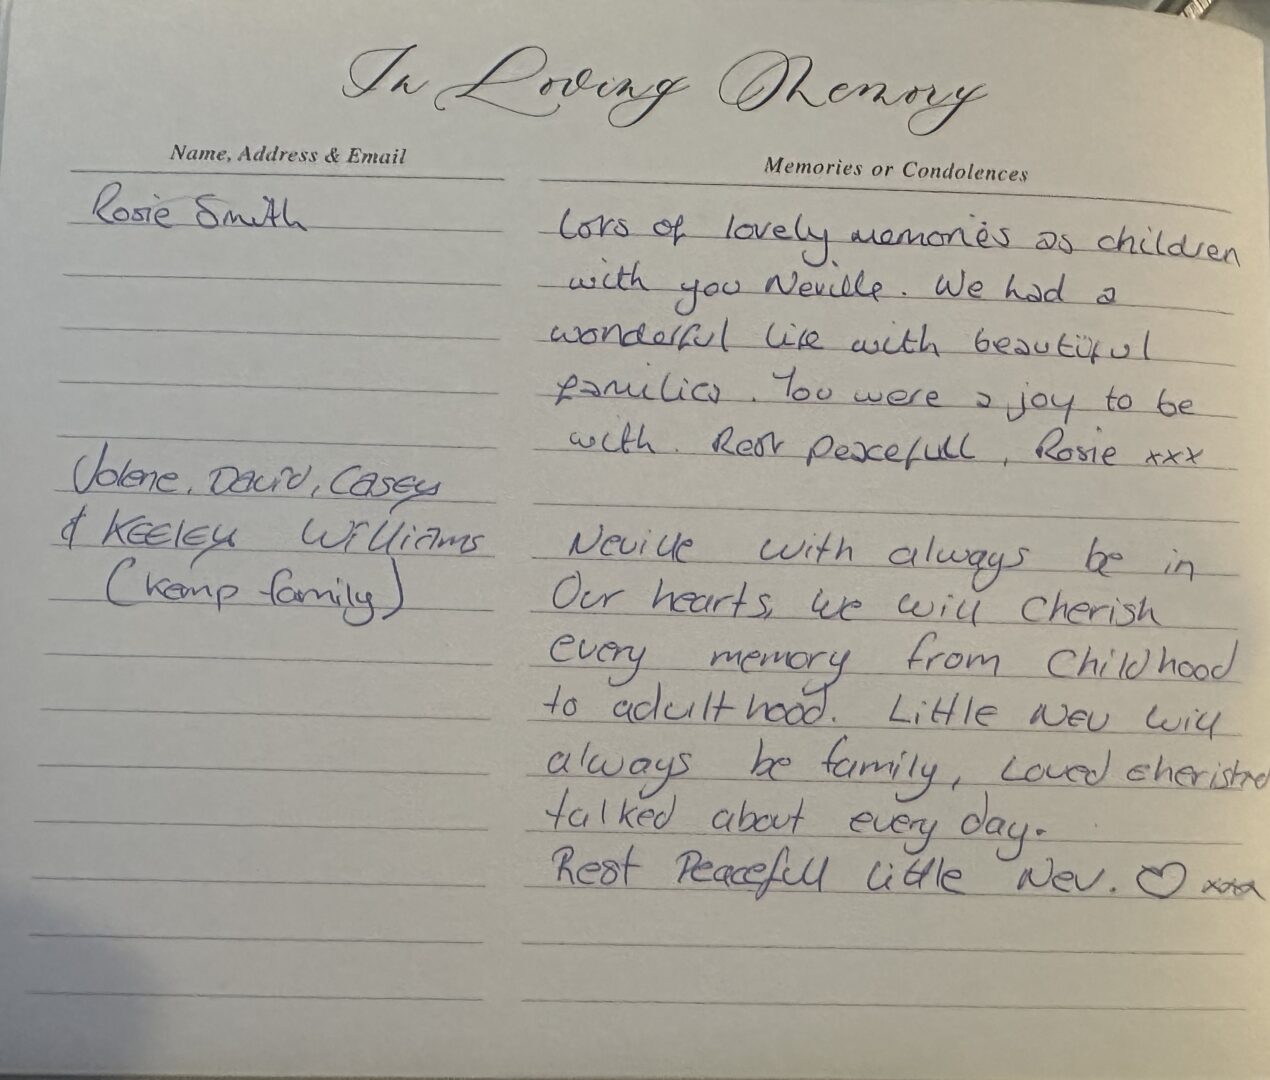 In Loving Memory
Name, Address & Email
Memories or Condolences
Rosie Smith
Lots of lovely memories as children
with you Neville. We had a
wonderful life with beautiful
families. You were a joy to be
with. Rest peacefull, Rosie xxx
Jolene, David, Casey
& KEELEY Williams
(Kemp family)
Neville with always be in
Our hearts, we will Cherish
every memory from Childhood
to adulthood. Little Nev will
always be family, Loved cherished
talked about every day.
Rest Peacefull Little Nev. ♡ xxxx